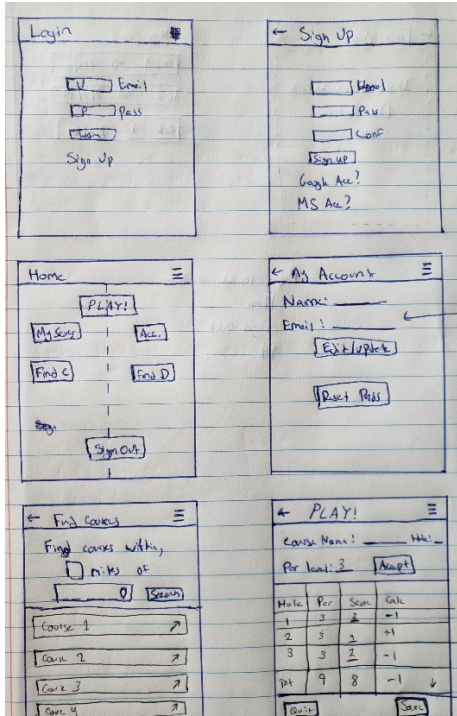 Login
Email
Pass
Login
Sign Up
← Sign Up
Email
Pass
Conf
Sign up
Google Acc?
MS Acc?
Home
PLAY!
My Scores
Acc.
Find C
Find D
Sign Out
← My Account
Name:
Email:
Edit/update
Reset Pass
← Find Courses
Find courses within,
miles of
Search
Course 1
Course 2
Course 3
Course 4
← PLAY!
Course Name: Hole:
Par level: 3 Accept
Hole Par Score Calc
1 3 2 -1
2 3 +1
3 3 2 -1
Tot 9 8 -1
Quit Save